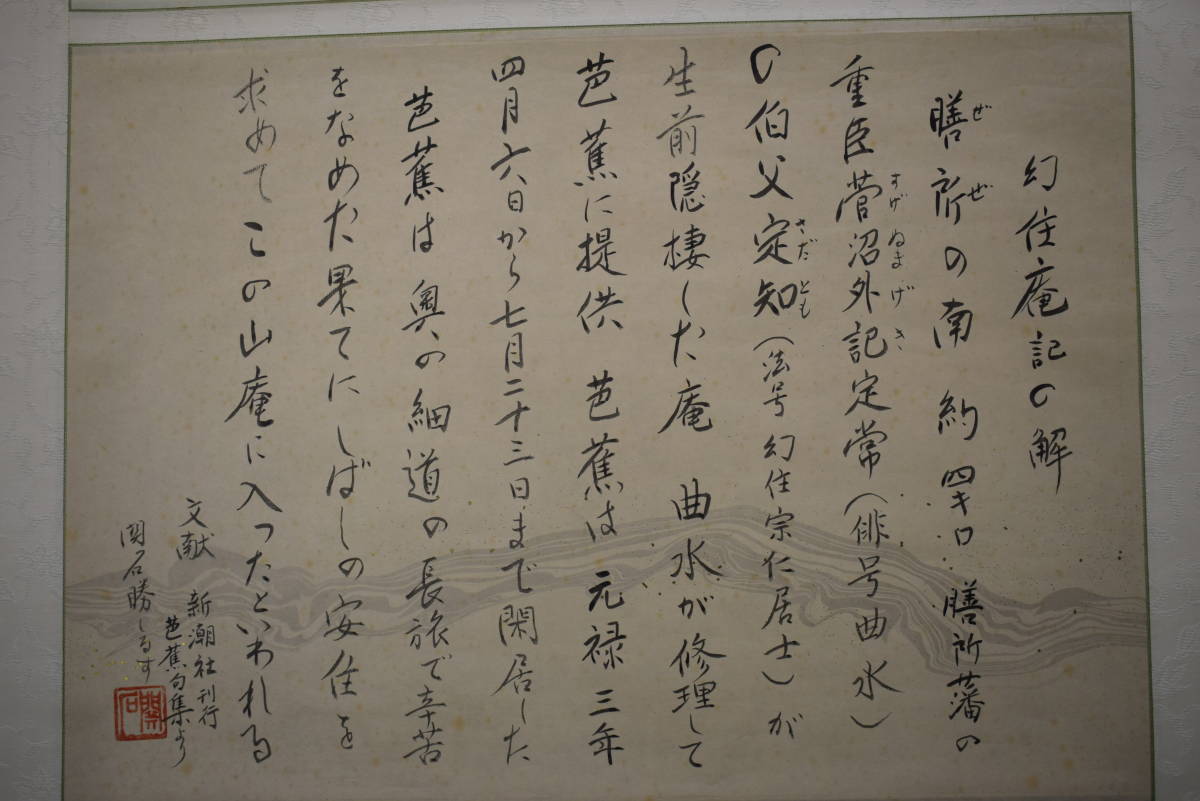 幻住庵記の解
膳所の南 約四キロ 膳所藩の
ぜぜ
重臣菅沼外記定常(俳号曲水)
すげぬまげき
の伯父定知(法号 幻住宗仁居士)が
さだとも
生前隠棲した庵 曲水が修理して
芭蕉に提供 芭蕉は元禄三年
四月六日から七月二十三日まで閑居した
芭蕉は奥の細道の長旅で辛苦
をなめた果てにしばしの安住を
求めてこの山庵に入ったといわれる
文献 新潮社刊行
芭蕉句集より
石勝しるす